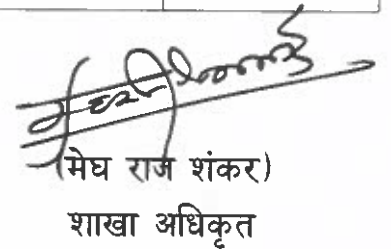 (मेघ राज शंकर)
शाखा अधिकृत